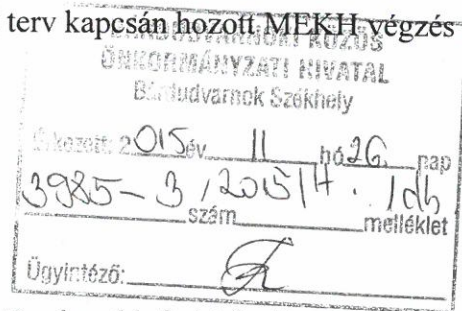 terv kapcsán hozott MEKH végzés
KÖZÖS
ÖNKORMÁNYZATI HIVATAL
Bánfudvarnok Székhely
Érkezett: 2015 év 11 hó 26 nap
3985-3/2015/H. 1 db
szám melléklet
Ügyintéző: